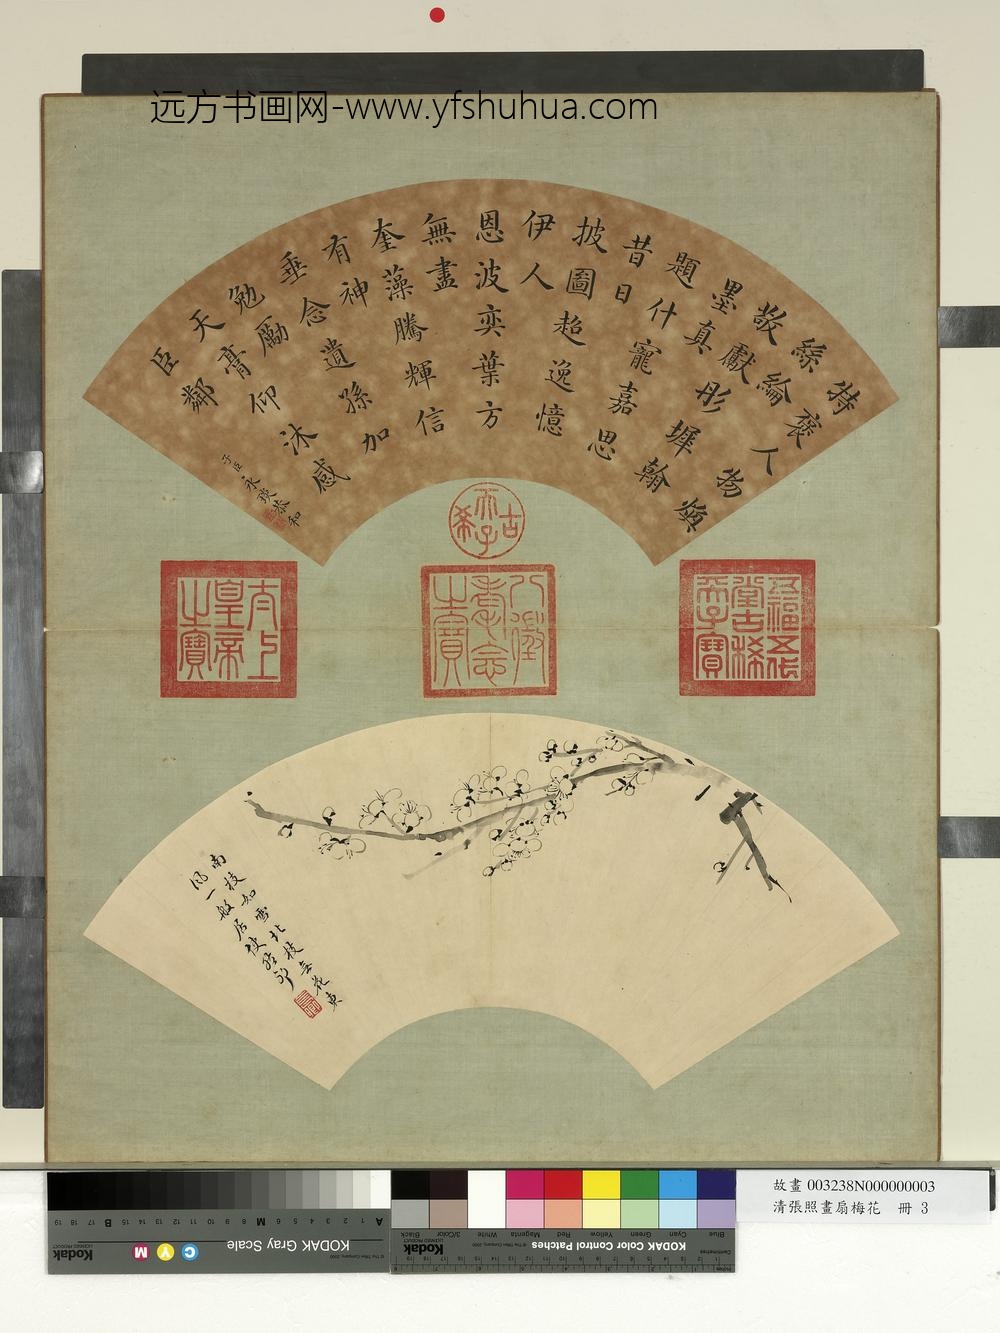 远方书画网-www.yfshuhua.com
特褒人物煥
絲綸
敬獻彤墀翰
墨真
題什寵嘉思
昔日
披圖超逸憶
伊人
恩波奕葉方
無盡
奎藻騰輝信
有神
垂念遺孫加
勉勵
天膏仰沐感
臣鄰
子臣永琰恭和
古希天子
五福五代堂古稀天子寶
八徵耄念之寶
太上皇帝之寶
南枝如雪北枝無花東
風一般居使然耶
故畫 003238N000000003
清張照畫扇梅花 冊 3
KODAK Gray Scale
Kodak
C Y M
KODAK Color Control Patches
Blue Cyan Green Yellow Red Magenta White 3/Color Black
Kodak